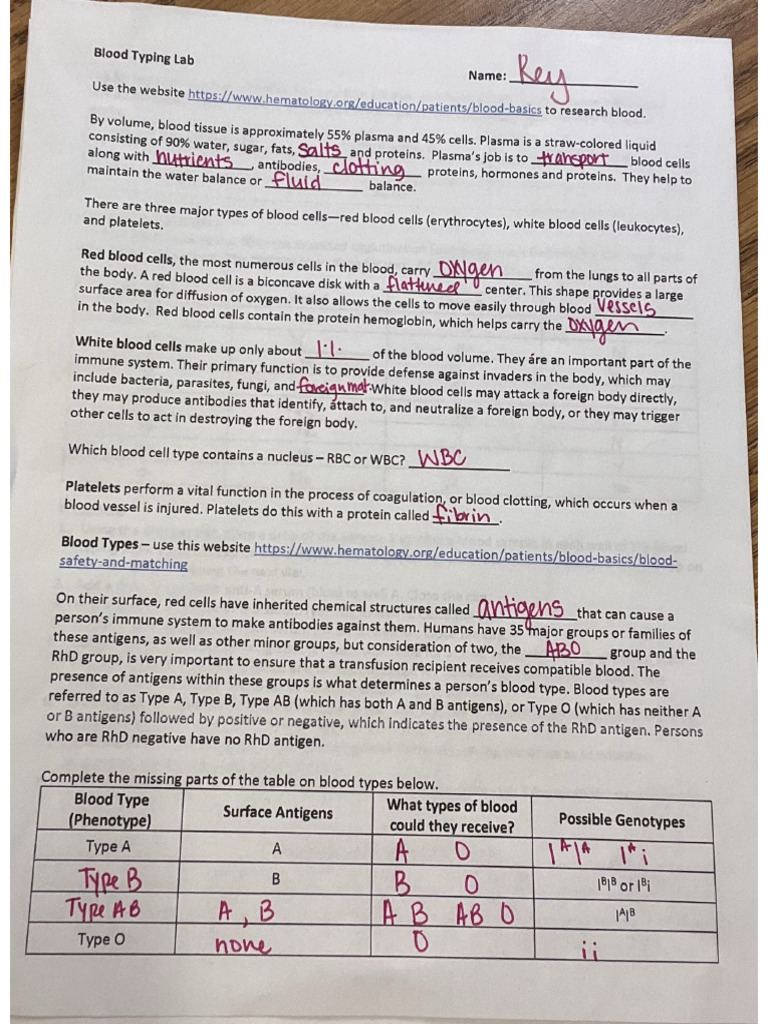 Blood Typing Lab
Name: Key
Use the website https://www.hematology.org/education/patients/blood-basics to research blood.
By volume, blood tissue is approximately 55% plasma and 45% cells. Plasma is a straw-colored liquid
consisting of 90% water, sugar, fats, Salts and proteins. Plasma's job is to transport blood cells
along with nutrients, antibodies, clotting proteins, hormones and proteins. They help to
maintain the water balance or fluid balance.
There are three major types of blood cells—red blood cells (erythrocytes), white blood cells (leukocytes),
and platelets.
Red blood cells, the most numerous cells in the blood, carry oxygen from the lungs to all parts of
the body. A red blood cell is a biconcave disk with a flattened center. This shape provides a large
surface area for diffusion of oxygen. It also allows the cells to move easily through blood vessels
in the body. Red blood cells contain the protein hemoglobin, which helps carry the oxygen.
White blood cells make up only about 1% of the blood volume. They áre an important part of the
immune system. Their primary function is to provide defense against invaders in the body, which may
include bacteria, parasites, fungi, and foreign mat. White blood cells may attack a foreign body directly,
they may produce antibodies that identify, attach to, and neutralize a foreign body, or they may trigger
other cells to act in destroying the foreign body.
Which blood cell type contains a nucleus – RBC or WBC? WBC
Platelets perform a vital function in the process of coagulation, or blood clotting, which occurs when a
blood vessel is injured. Platelets do this with a protein called fibrin.
Blood Types – use this website https://www.hematology.org/education/patients/blood-basics/blood-
safety-and-matching
On their surface, red cells have inherited chemical structures called antigens that can cause a
person's immune system to make antibodies against them. Humans have 35 major groups or families of
these antigens, as well as other minor groups, but consideration of two, the ABO group and the
RhD group, is very important to ensure that a transfusion recipient receives compatible blood. The
presence of antigens within these groups is what determines a person's blood type. Blood types are
referred to as Type A, Type B, Type AB (which has both A and B antigens), or Type O (which has neither A
or B antigens) followed by positive or negative, which indicates the presence of the RhD antigen. Persons
who are RhD negative have no RhD antigen.
Complete the missing parts of the table on blood types below.
Blood Type (Phenotype) Surface Antigens What types of blood could they receive? Possible Genotypes
Type A A A O IᴬIᴬ Iᴬi
Type B B B O IᴮIᴮ or Iᴮi
Type AB A, B A B AB O IᴬIᴮ
Type O none O ii